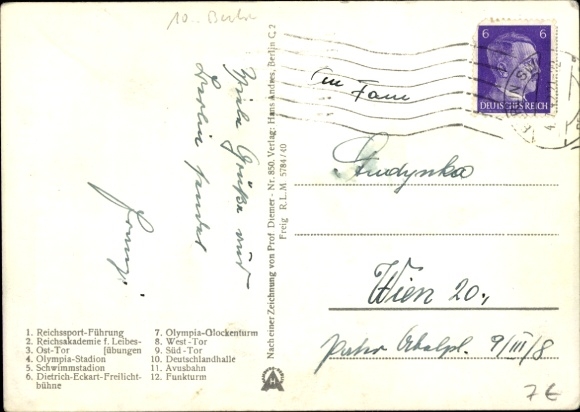 10. Berlin
Viele Grüße aus
Berlin sendet
Franzi
Nach einer Zeichnung von Prof Diemer - Nr. 850. Verlag: Hans Andres, Berlin C 2
Freig R.L.M 5784/40
6 6
DEUTSCHES REICH
Fam
Studynka
Wien 20.,
9/III/8
1. Reichssport-Führung
2. Reichsakademie f. Leibes-
3. Ost-Tor [übungen
4. Olympia-Stadion
5. Schwimmstadion
6. Dietrich-Eckart-Freilicht-
bühne
7. Olympia-Glockenturm
8. West-Tor
9. Süd-Tor
10. Deutschlandhalle
11. Avusbahn
12. Funkturm
7€